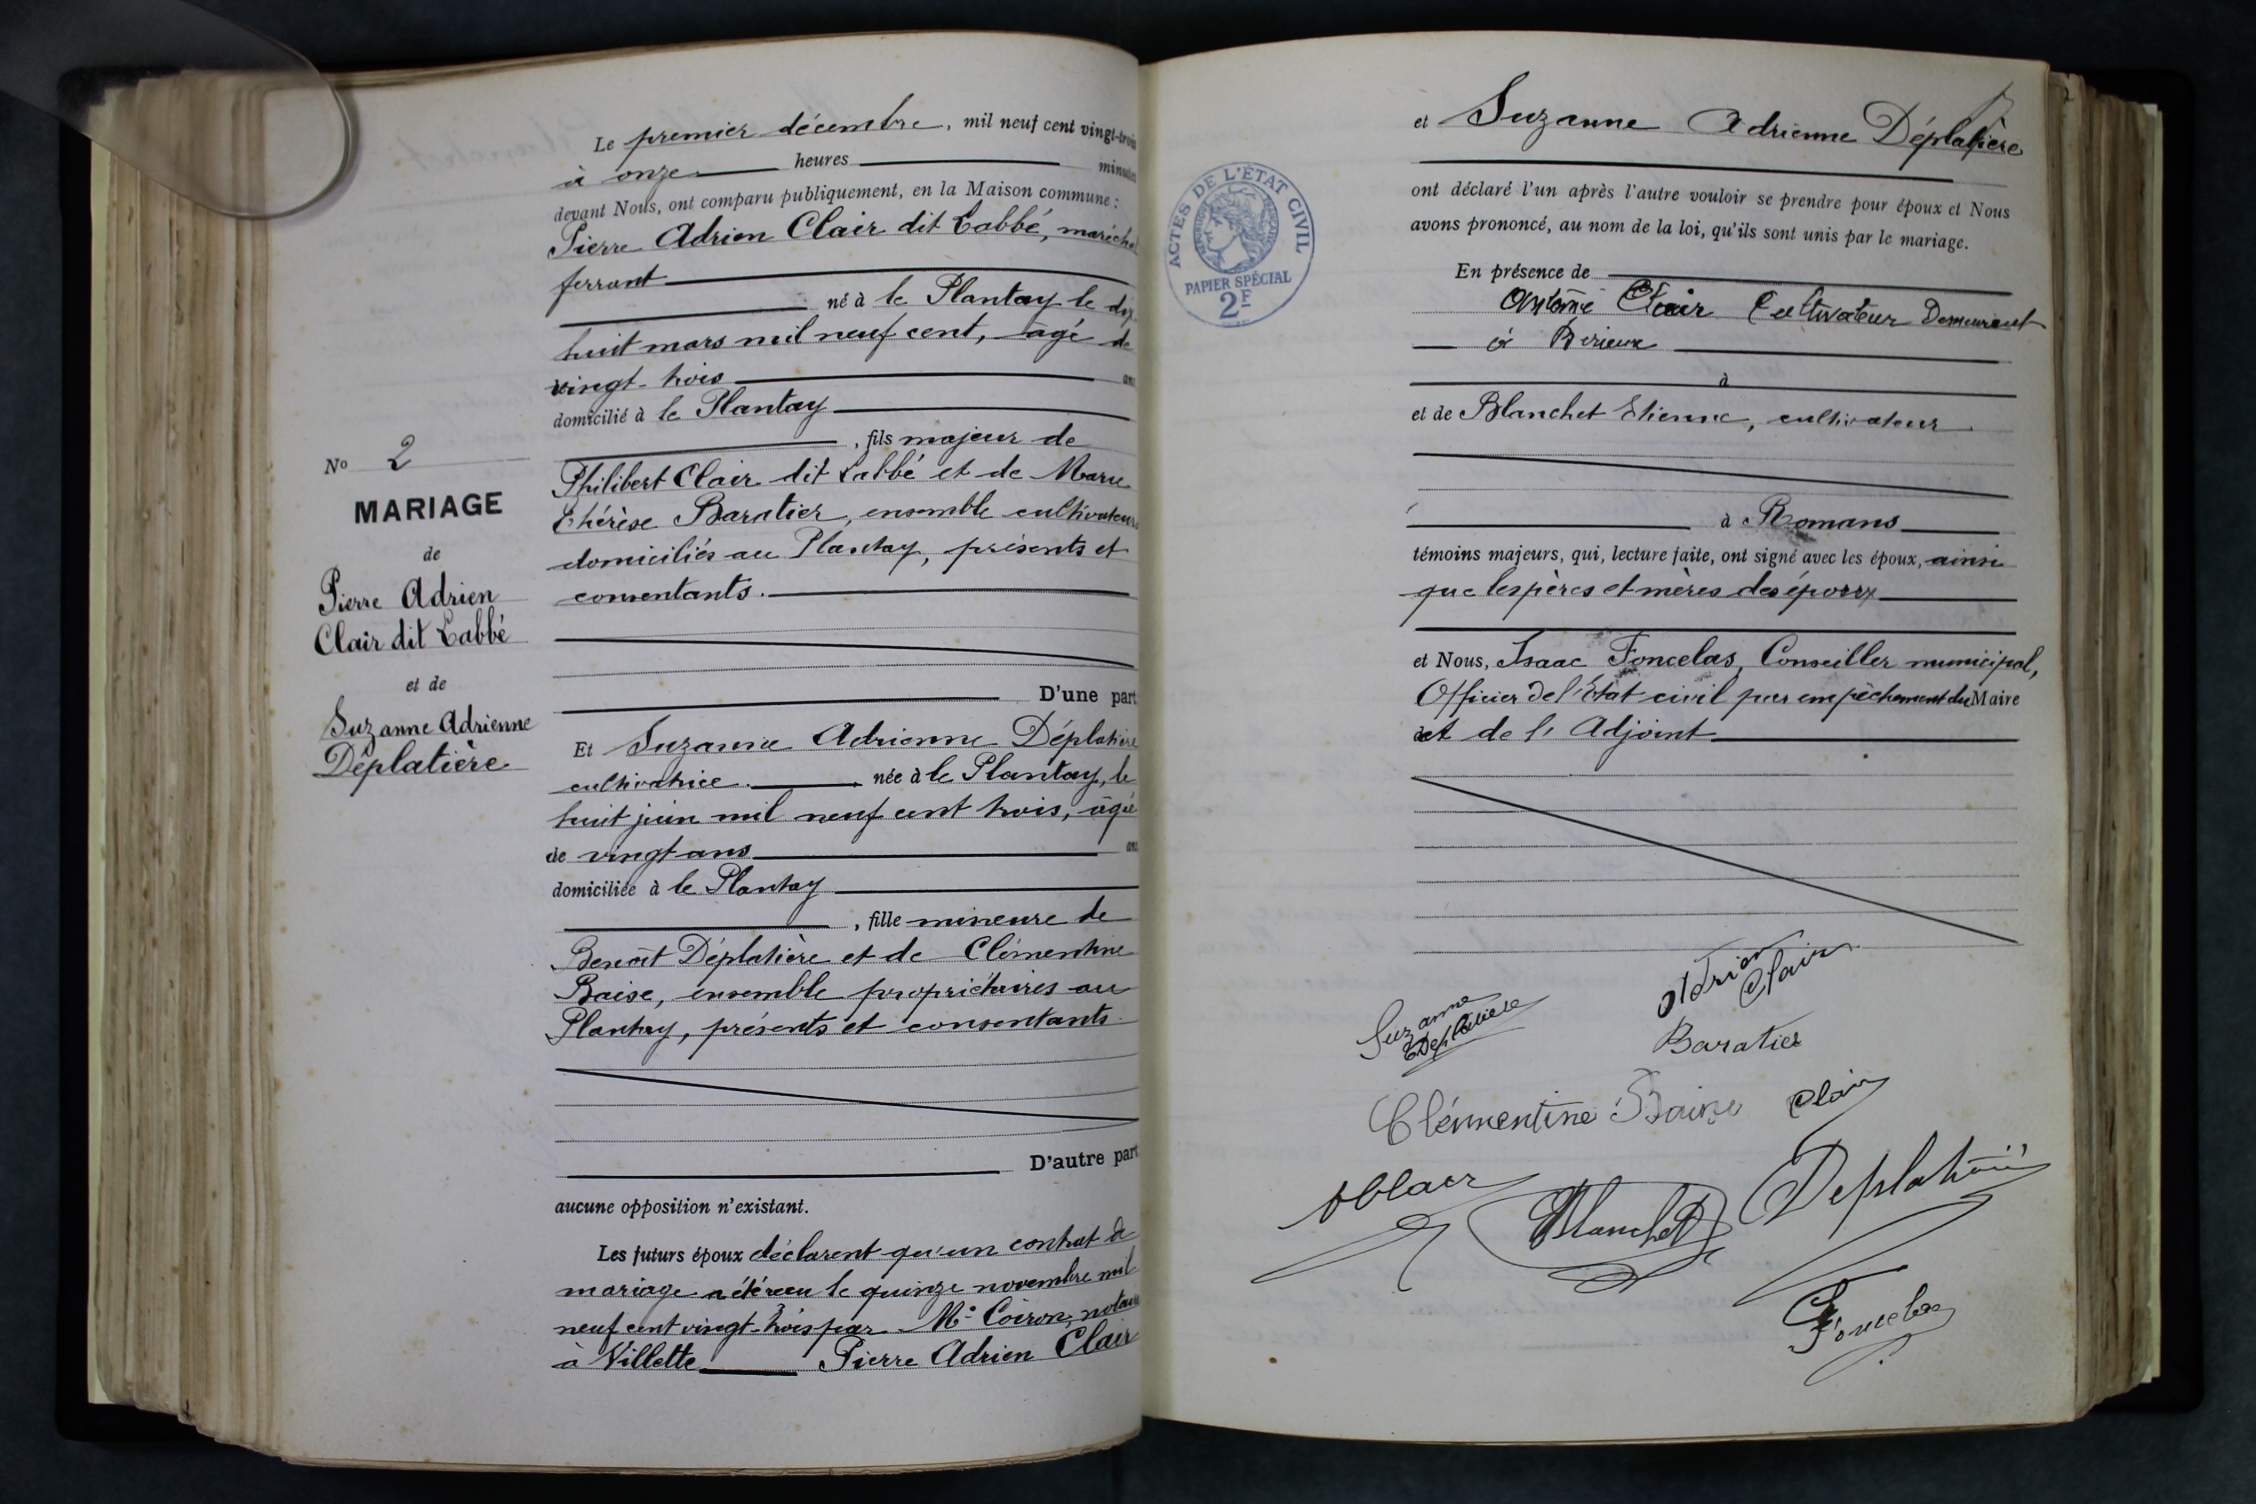 Le premier décembre, mil neuf cent vingt-trois
à onze heures minutes
devant Nous, ont comparu publiquement, en la Maison commune :
Pierre Adrien Clair dit Labbé, maréchal
ferrant
né à le Plantay le dix
huit mars mil neuf cent, âgé de
vingt-trois ans
domicilié à le Plantay
, fils majeur de
Philibert Clair dit Labbé et de Marie
Thérèse Baratier, ensemble cultivateurs
domiciliés au Plantay, présents et
consentants.
D'une part
No 2
MARIAGE
de
Pierre Adrien
Clair dit Labbé
et de
Suzanne Adrienne
Déplatière
Et Suzanne Adrienne Déplatière
cultivatrice. née à le Plantay, le
huit juin mil neuf cent trois, âgée
de vingt ans ans
domiciliée à le Plantay
, fille mineure de
Benoît Déplatière et de Clémentine
Baise, ensemble propriétaires au
Plantay, présents et consentants.
D'autre part
aucune opposition n'existant.
Les futurs époux déclarent qu'un contrat de
mariage a été reçu le quinze novembre mil
neuf cent vingt-trois par Me Coiron, notaire
à Villette Pierre Adrien Clair
et Suzanne Adrienne Déplatière
ont déclaré l'un après l'autre vouloir se prendre pour époux et Nous
avons prononcé, au nom de la loi, qu'ils sont unis par le mariage.
ACTES DE L'ÉTAT CIVIL
PAPIER SPÉCIAL
2F
En présence de
Antoine Clair Cultivateur Demeurant
à Birieux
à
et de Blanchet Etienne, cultivateur
à Romans
témoins majeurs, qui, lecture faite, ont signé avec les époux, ainsi
que les pères et mères des époux
et Nous, Isaac Foncelas, Conseiller municipal,
Officier de l'Etat civil par empêchement du Maire
et de l'Adjoint
Adrien
Clair
Suzanne
Déplatière
Baratier
Clémentine Baise Clair
Clair
Blanchet
Deplatière
Foncelas